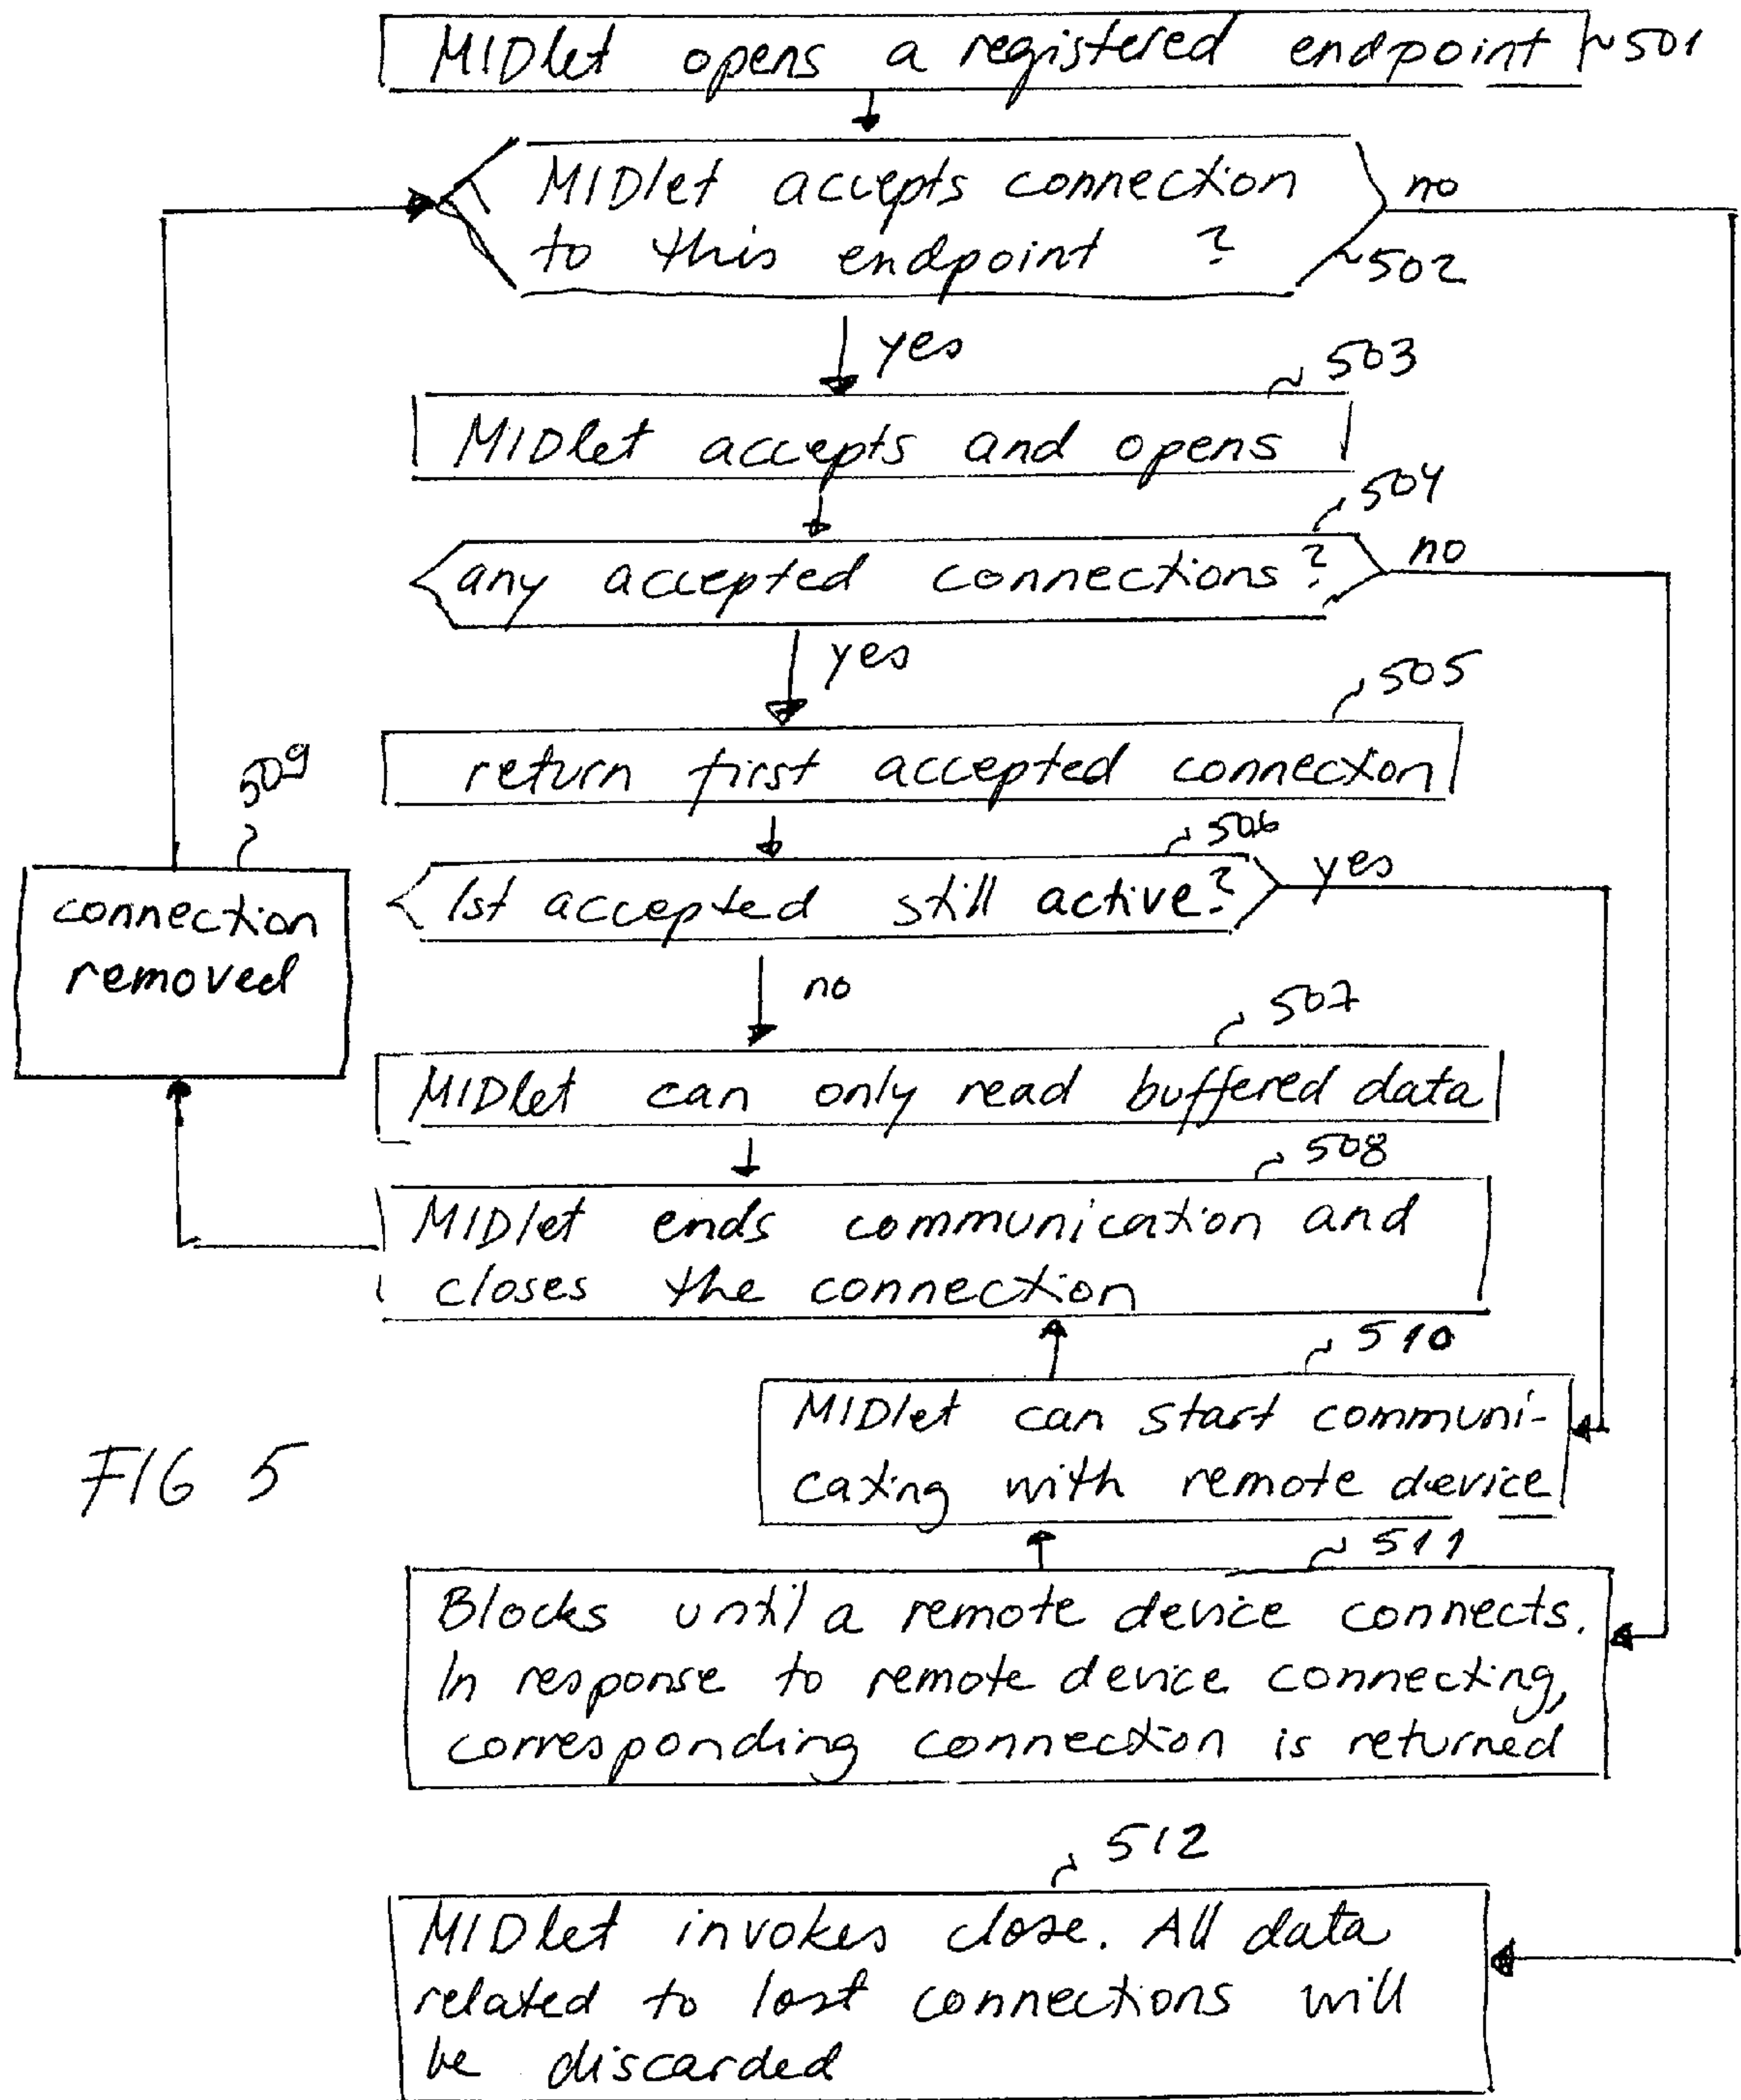 MIDlet opens a registered endpoint ~501
MIDlet accepts connection
to this endpoint ?
no
~502
yes
503
MIDlet accepts and opens
504
any accepted connections?
no
yes
505
return first accepted connection
509
connection
removed
506
1st accepted still active?
yes
no
507
MIDlet can only read buffered data
508
MIDlet ends communication and
closes the connection
510
MIDlet can start communi-
cating with remote device
FIG 5
511
Blocks until a remote device connects.
In response to remote device connecting,
corresponding connection is returned
512
MIDlet invokes close. All data
related to lost connections will
be discarded